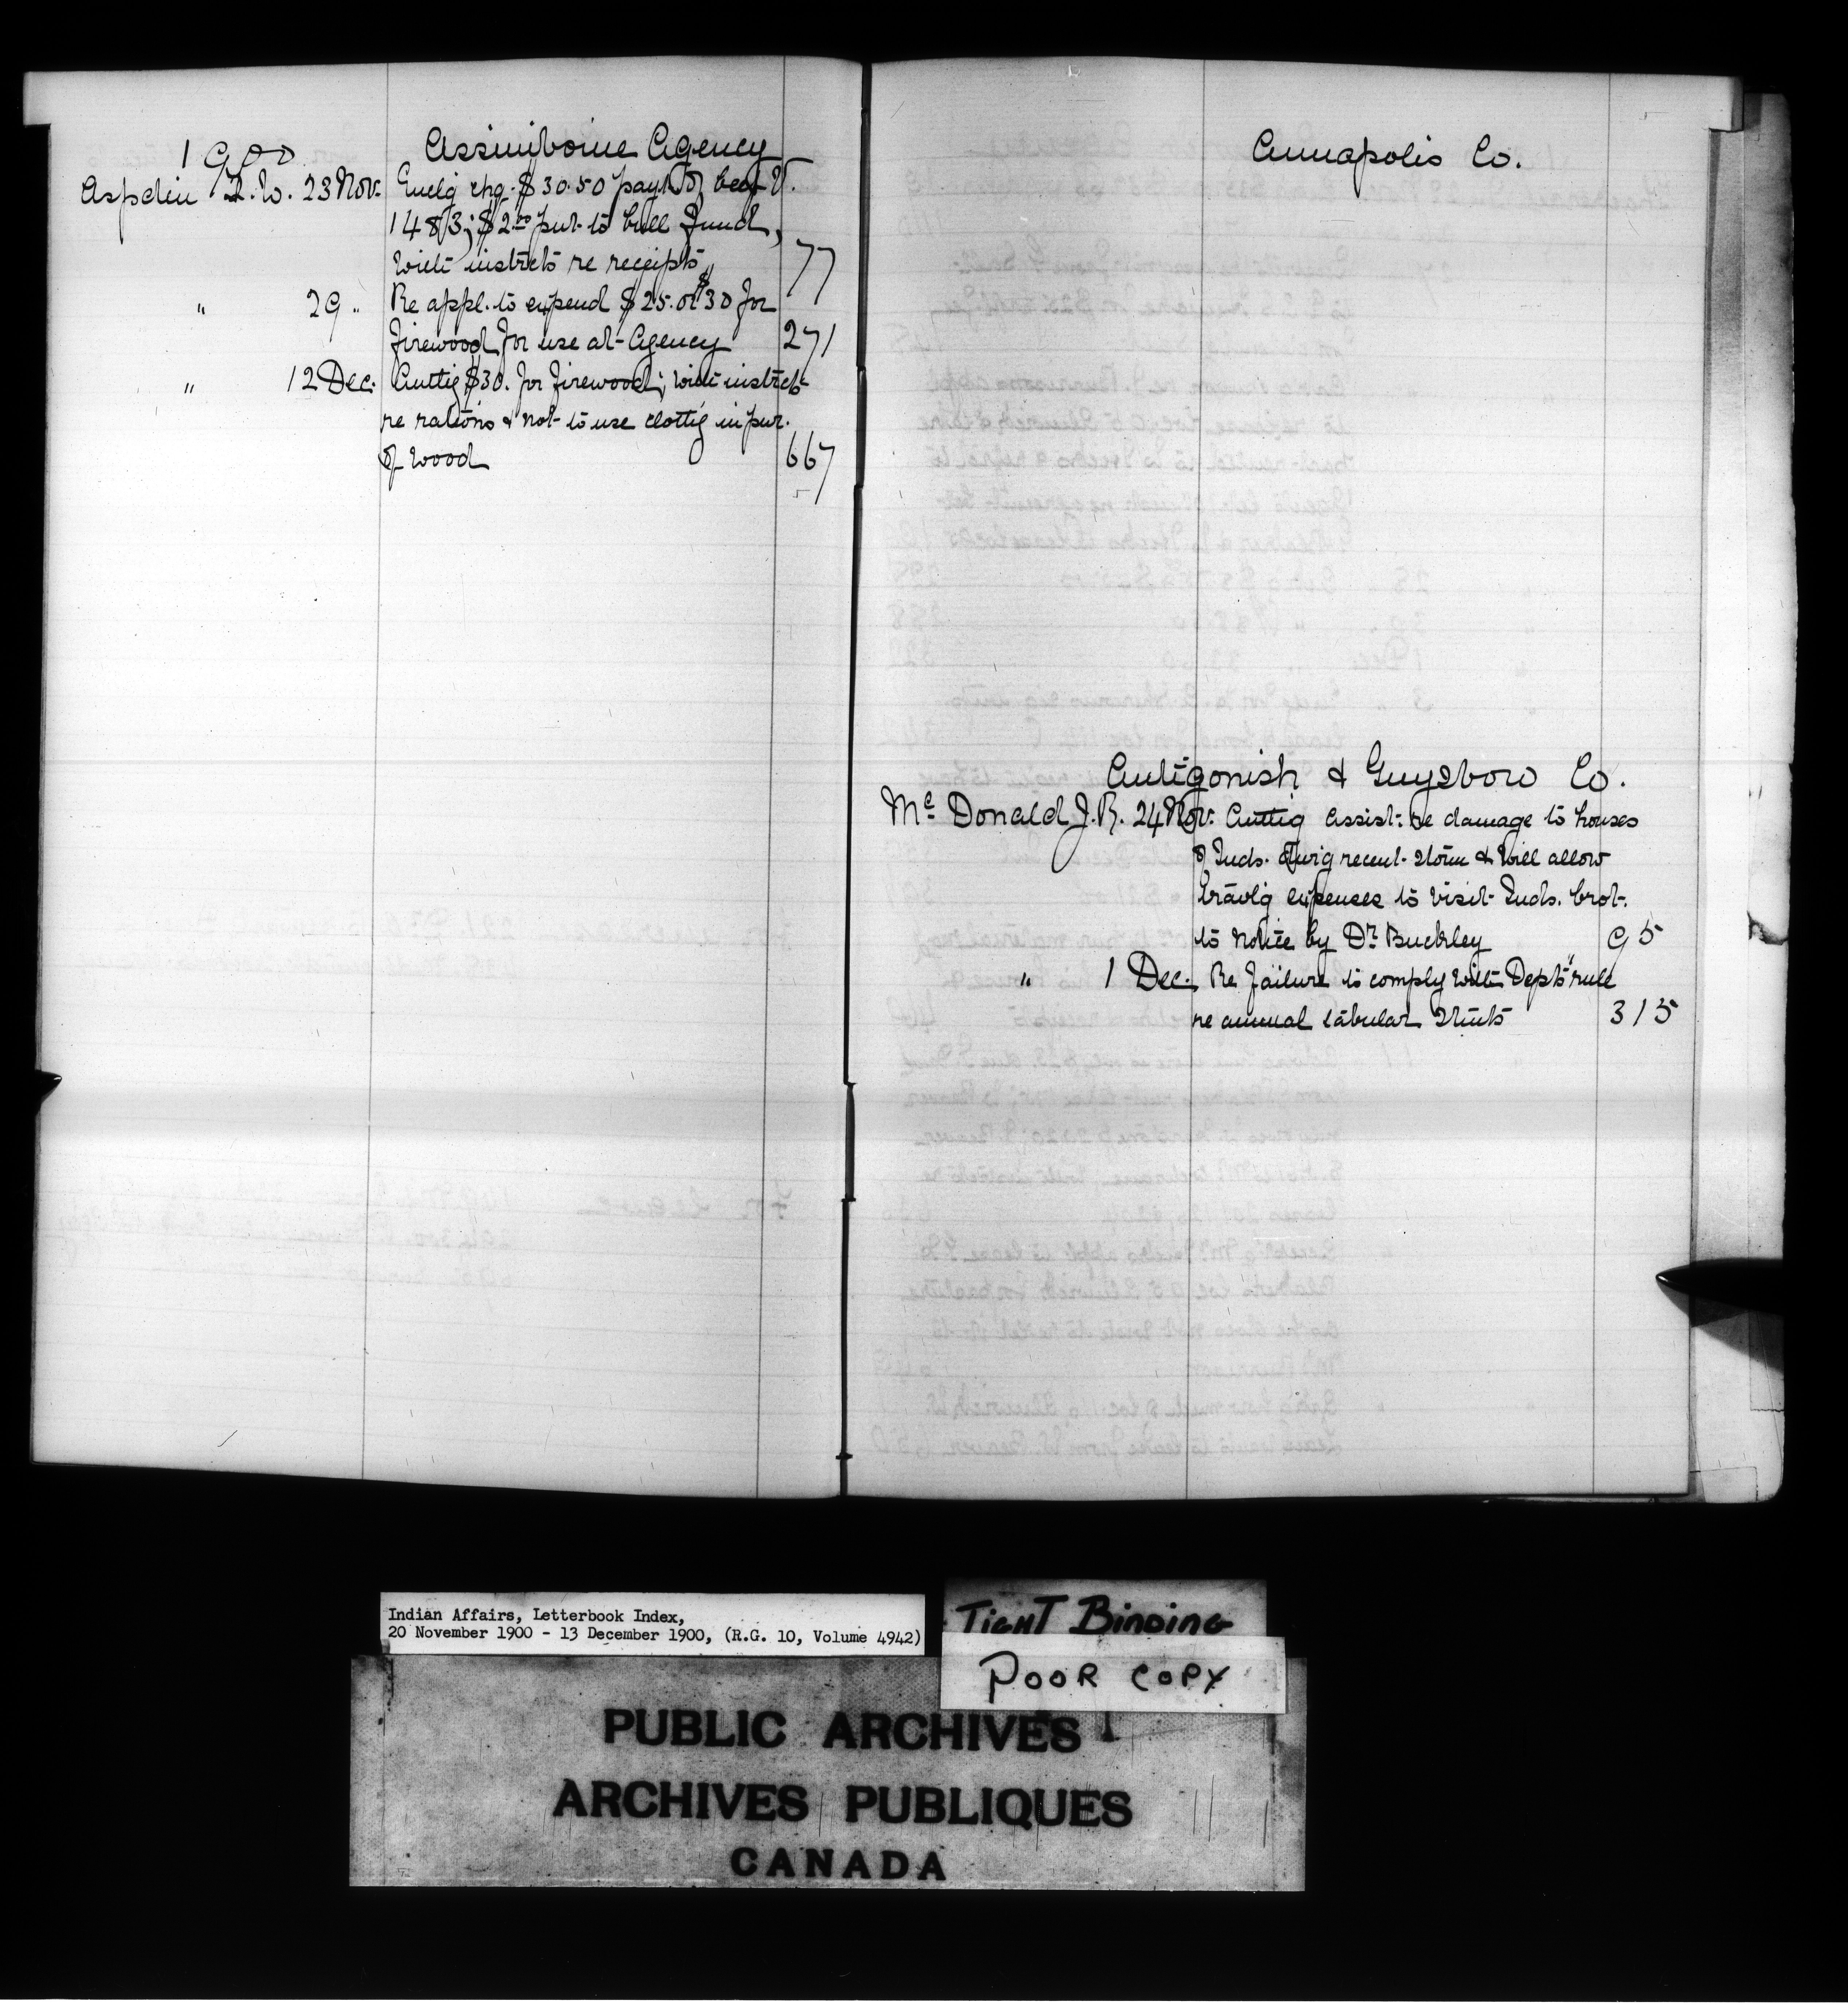 1900 Assiniboine Agency
Aspdin T.W. 23 Nov. Enclg chq. $30.50 paymt of beef V.
1483; $2.00 put to bull fund,
with instrcts re receipts 77
" 29 " Re appl. to expend $25. or $30 for
firewood for use at Agency 271
" 12 Dec. Auttig $30. for firewood; with instrcts
re rations & not to use clottig in pur.
of wood 667
Annapolis Co.
Antigonish & Guysboro Co.
Mc Donald J.R. 24 Nov. Auttig assist. re damage to houses
of Inds. durig recent storm & will allow
travlg expenses to visit Inds. brot.
to notice by Dr. Buckley 95
" 1 Dec. Re failure to comply with Depts rule
re annual tabular stmts 315
Indian Affairs, Letterbook Index,
20 November 1900 - 13 December 1900, (R.G. 10, Volume 4942)
TIGHT BINDING
POOR COPY
PUBLIC ARCHIVES
ARCHIVES PUBLIQUES
CANADA